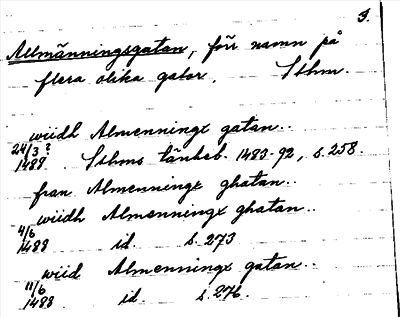 3.
Allmänningsgatan, förr namn på
flera olika gator. Sthm.
wiidh Almenningx gatan..
24/3 ?
1488 Sthms tänkeb. 1483-92, s. 258.
fran Almenningx ghatan..
wiidh Almenningx ghatan..
4/6
1488 id. s. 273
wiid Almenningx gatan..
11/6
1488 id. s. 276.